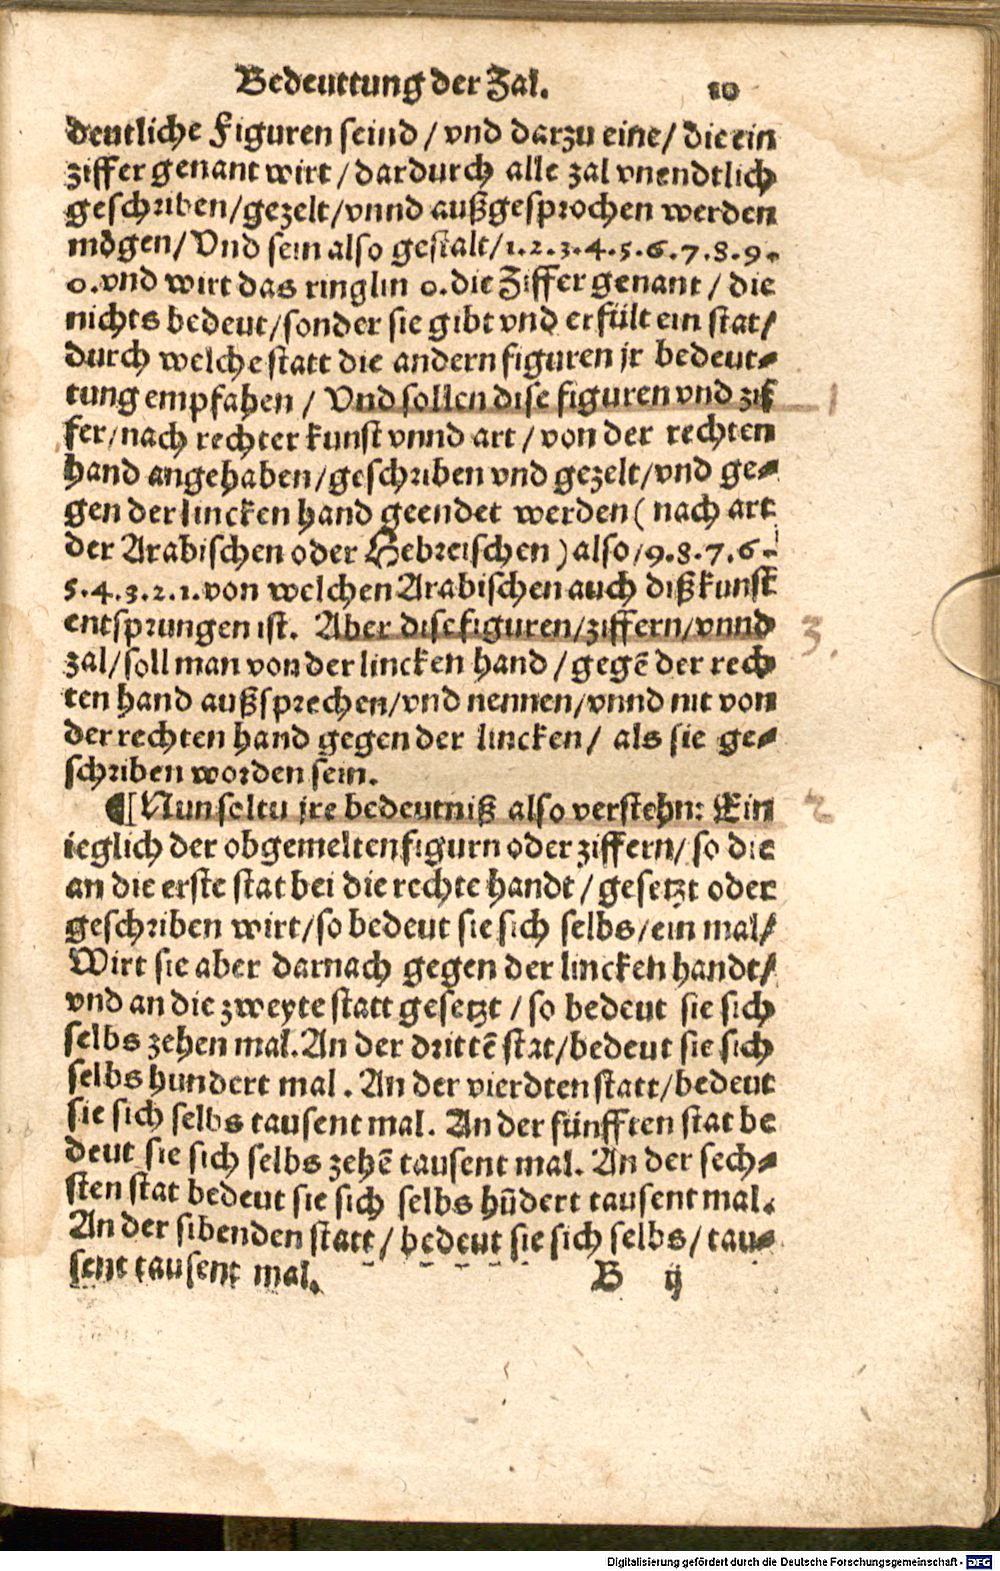 Bedeuttung der Zal. 10
deutliche Figuren seind / vnd darzu eine / die ein
ziffer genant wirt / dardurch alle zal vnendtlich
geschriben / gezelt / vnnd außgesprochen werden
mögen / Vnd sein also gestalt / 1.2.3.4.5.6.7.8.9.
0. vnd wirt das ringlin 0. die Ziffer genant / die
nichts bedeut / sonder sie gibt vnd erfült ein stat /
durch welche statt die andern figuren jr bedeut⸗
tung empfahen / Vnd sollen dise figuren vnd zif
fer / nach rechter kunst vnnd art / von der rechten
hand angehaben / geschriben vnd gezelt / vnd ge⸗
gen der lincken hand geendet werden ( nach art
der Arabischen oder Hebreischen ) also / 9.8.7.6.
5.4.3.2.1. von welchen Arabischen auch diß kunst
entsprungen ist. Aber dise figuren / ziffern / vnnd
zal / soll man von der lincken hand / gegē der rech
ten hand außsprechen / vnd nennen / vnnd nit von
der rechten hand gegen der lincken / als sie ge⸗
schriben worden sein.
¶ Nun soltu jre bedeutniß also verstehn: Ein
ieglich der obgemelten figurn oder ziffern / so die
an die erste stat bei die rechte handt / gesetzt oder
geschriben wirt / so bedeut sie sich selbs / ein mal /
Wirt sie aber darnach gegen der lincken handt /
vnd an die zweyte statt gesetzt / so bedeut sie sich
selbs zehen mal. An der drittē stat / bedeut sie sich
selbs hundert mal. An der vierdten statt / bedeut
sie sich selbs tausent mal. An der fünfften stat be
deut sie sich selbs zehē tausent mal. An der sech⸗
sten stat bedeut sie sich selbs hūdert tausent mal.
An der sibenden statt / bedeut sie sich selbs / tau⸗
sent tausent mal. B ij
1
3.
2
Digitalisierung gefördert durch die Deutsche Forschungsgemeinschaft - DFG